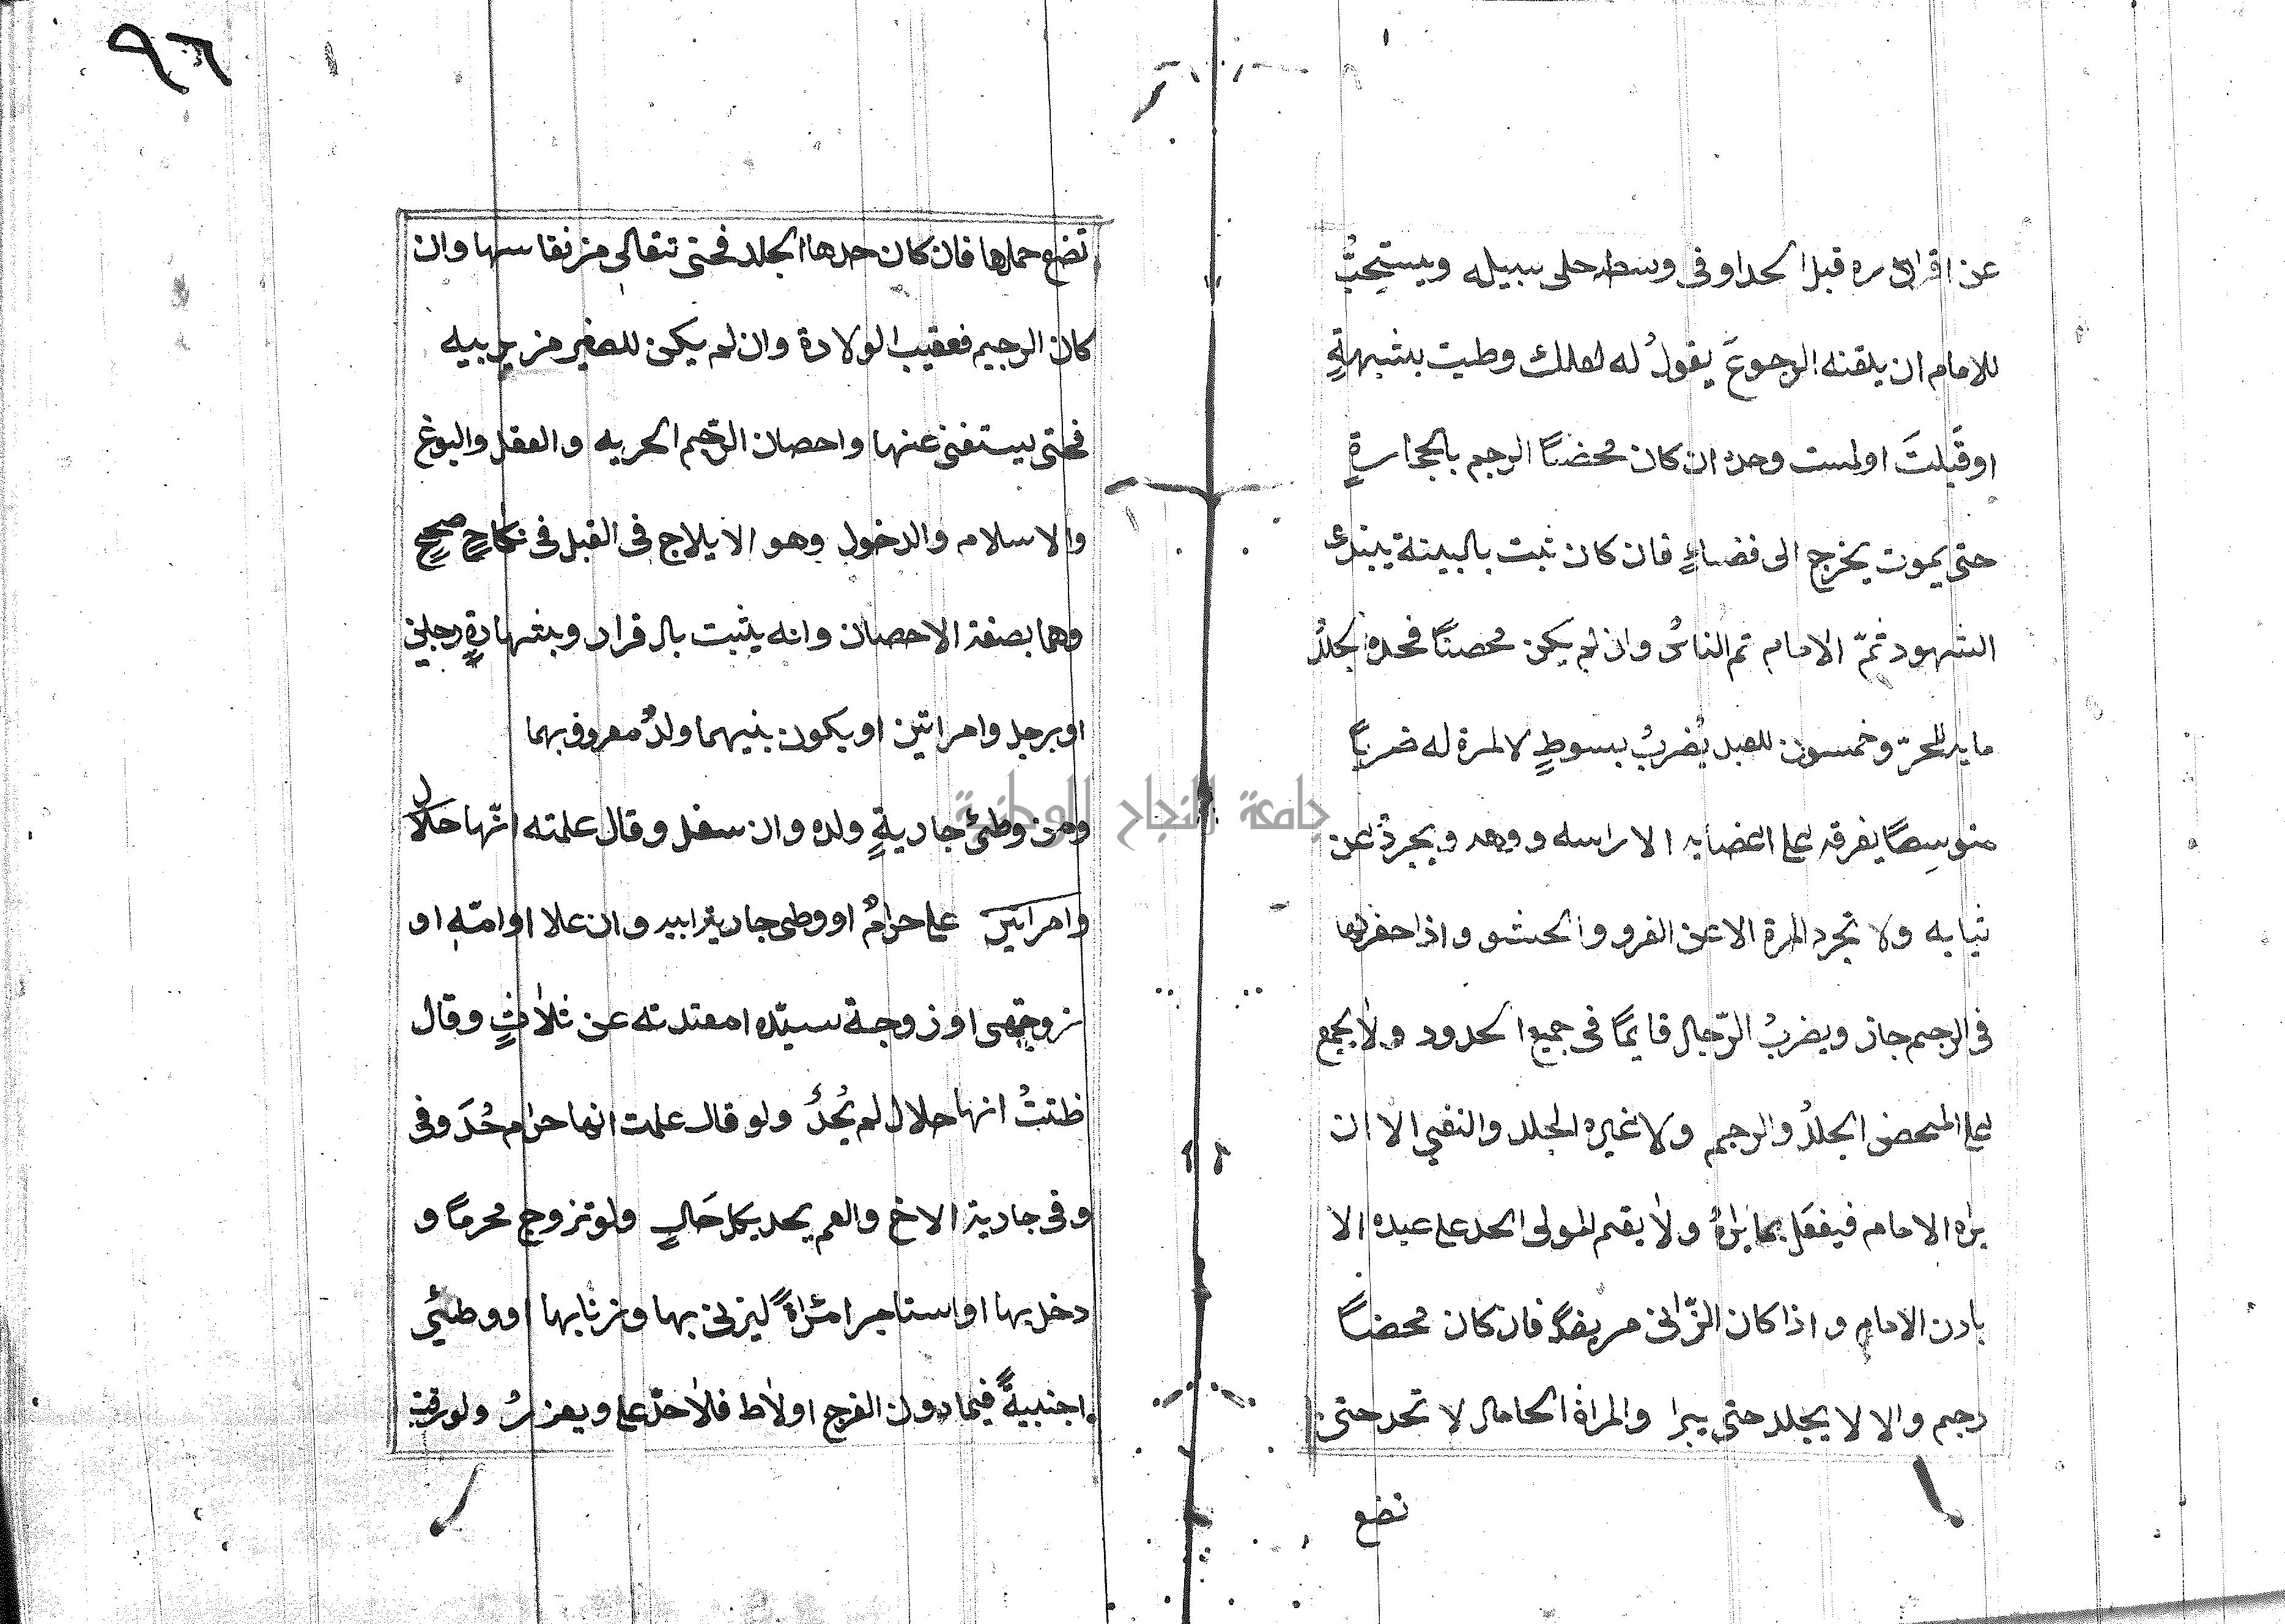 ٩٦
عن اقراره قبل الحد او فى وسطه خلى سبيله ويستحبُّ
للامام ان يلقنه الرجوعَ يقولُ له لعلك وطيت بشبهةٍ
او قَبلتَ او لمست وحده ان كان محضنًا الرجم بالحجارةٍ
حتى يموت يخرج الى فضاءٍ فان كان ثبت بالبينة يبتدئ
الشهود ثمّ الامام ثم الناسُ وان لم يكن محصنًا فحده الجلدُ
ماية للحرّ وخمسون للعبد يُضربُ بسوطٍ لا ثمرة له ضربًا
متوسطًا يفرقه على اعضايه الا راسه ووجهه ويجردُ عن
ثيابه ولا تجرد المرة الا عن الفرو والحشو واذا حفر لها
فى الرجم جاز ويضربُ الرّجال قايمًا فى جميع الحدود ولا يجمع
على المحصن الجلدُ والرجم ولا غيره الجلد والنفي الا ان
يراه الامام فيفعَل بما يراهُ ولا يقيم المولى الحد على عبده الا
بادن الامام واذا كان الزّانى مريضًا فان كان محضنًا
رجم والا لا يجلد حتى يبرا والمراة الحامل لا تحد حتى
تضع
تضع حملها فان كان حدها الجلد فحتى تتعالى من نفاسها وان
كان الرجيم فعقيب الولادة وان لم يكن للصغير من يربيه
فحتى يستغنى عنها واحصان الرّجم الحريه والعقل والبوغ
والاسلام والدخول وهو الايلاج فى القبل فى نكاحٍ صحيحٍ
وهما بصفة الاحصان وانه يثبت بالاقرار وبشهادةٍ رجلين
او برجل وامراتين او يكون بنيهما ولدٌ معروف بهما
ومن وطئ جاريةٍ ولده وان سفل وقال علمته انّها حلال
وامراتين على حرامٌ او وطى جارية ابيه وان علا او امّه او
زوجته او زوجة سيّده او معتدته عن ثلاثٍ وقال
ظننتُ انها حلال لم يُحدُّ ولو قال علمت انها حرام حُدَ وفى
وفى جارية الاخ والعم يحد بكل حَالٍ ولو تزوج محرمًا و
دخل بها او استاجر امراةً ليزنى بها وزنا بها او وطئي
اجنبيةً فيما دون الفرج او لاط فلا حدّ على ويعزرُ ولو زفت
جامعة النجاح الوطنية